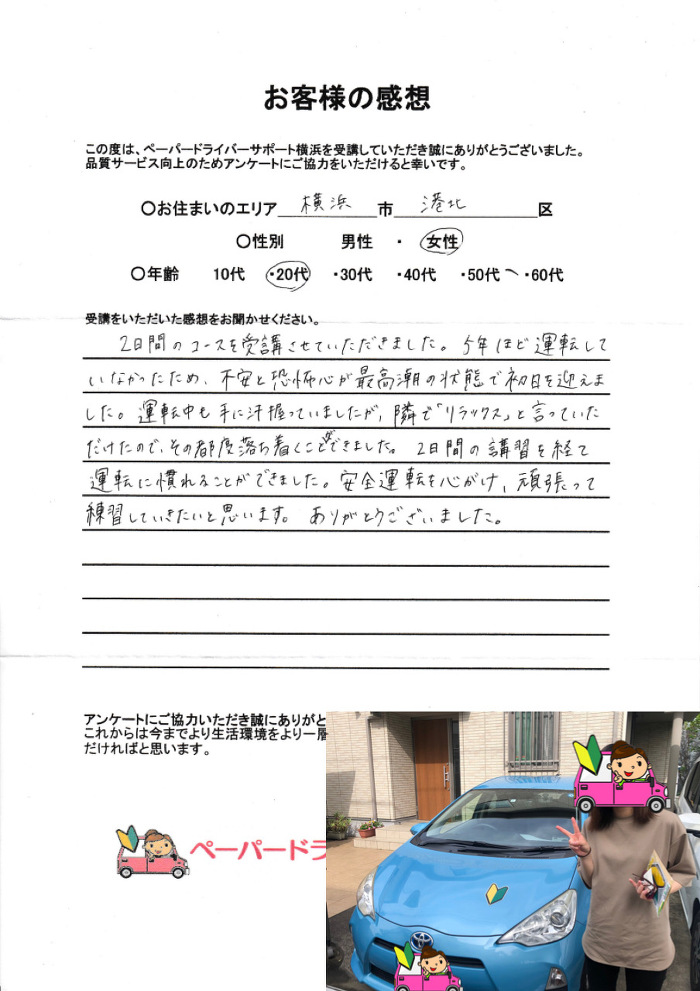 お客様の感想
この度は、ペーパードライバーサポート横浜を受講していただき誠にありがとうございました。
品質サービス向上のためアンケートにご協力をいただけると幸いです。
〇お住まいのエリア 横浜 市 港北 区
〇性別 男性 ・ 女性
〇年齢 10代 ・20代 ・30代 ・40代 ・50代 ～ ・60代
受講をいただいた感想をお聞かせください。
2日間のコースを受講させていただきました。5年ほど運転して
いなかったため、不安と恐怖心が最高潮の状態で初日を迎えま
した。運転中も手に汗握っていましたが、隣で「リラックス」と言っていた
だけたので、その都度落ち着くことができました。2日間の講習を経て
運転に慣れることができました。安全運転を心がけ、頑張って
練習していきたいと思います。ありがとうございました。
アンケートにご協力いただき誠にありがと
これからは今までより生活環境をより一層
だければと思います。
ペーパードラ